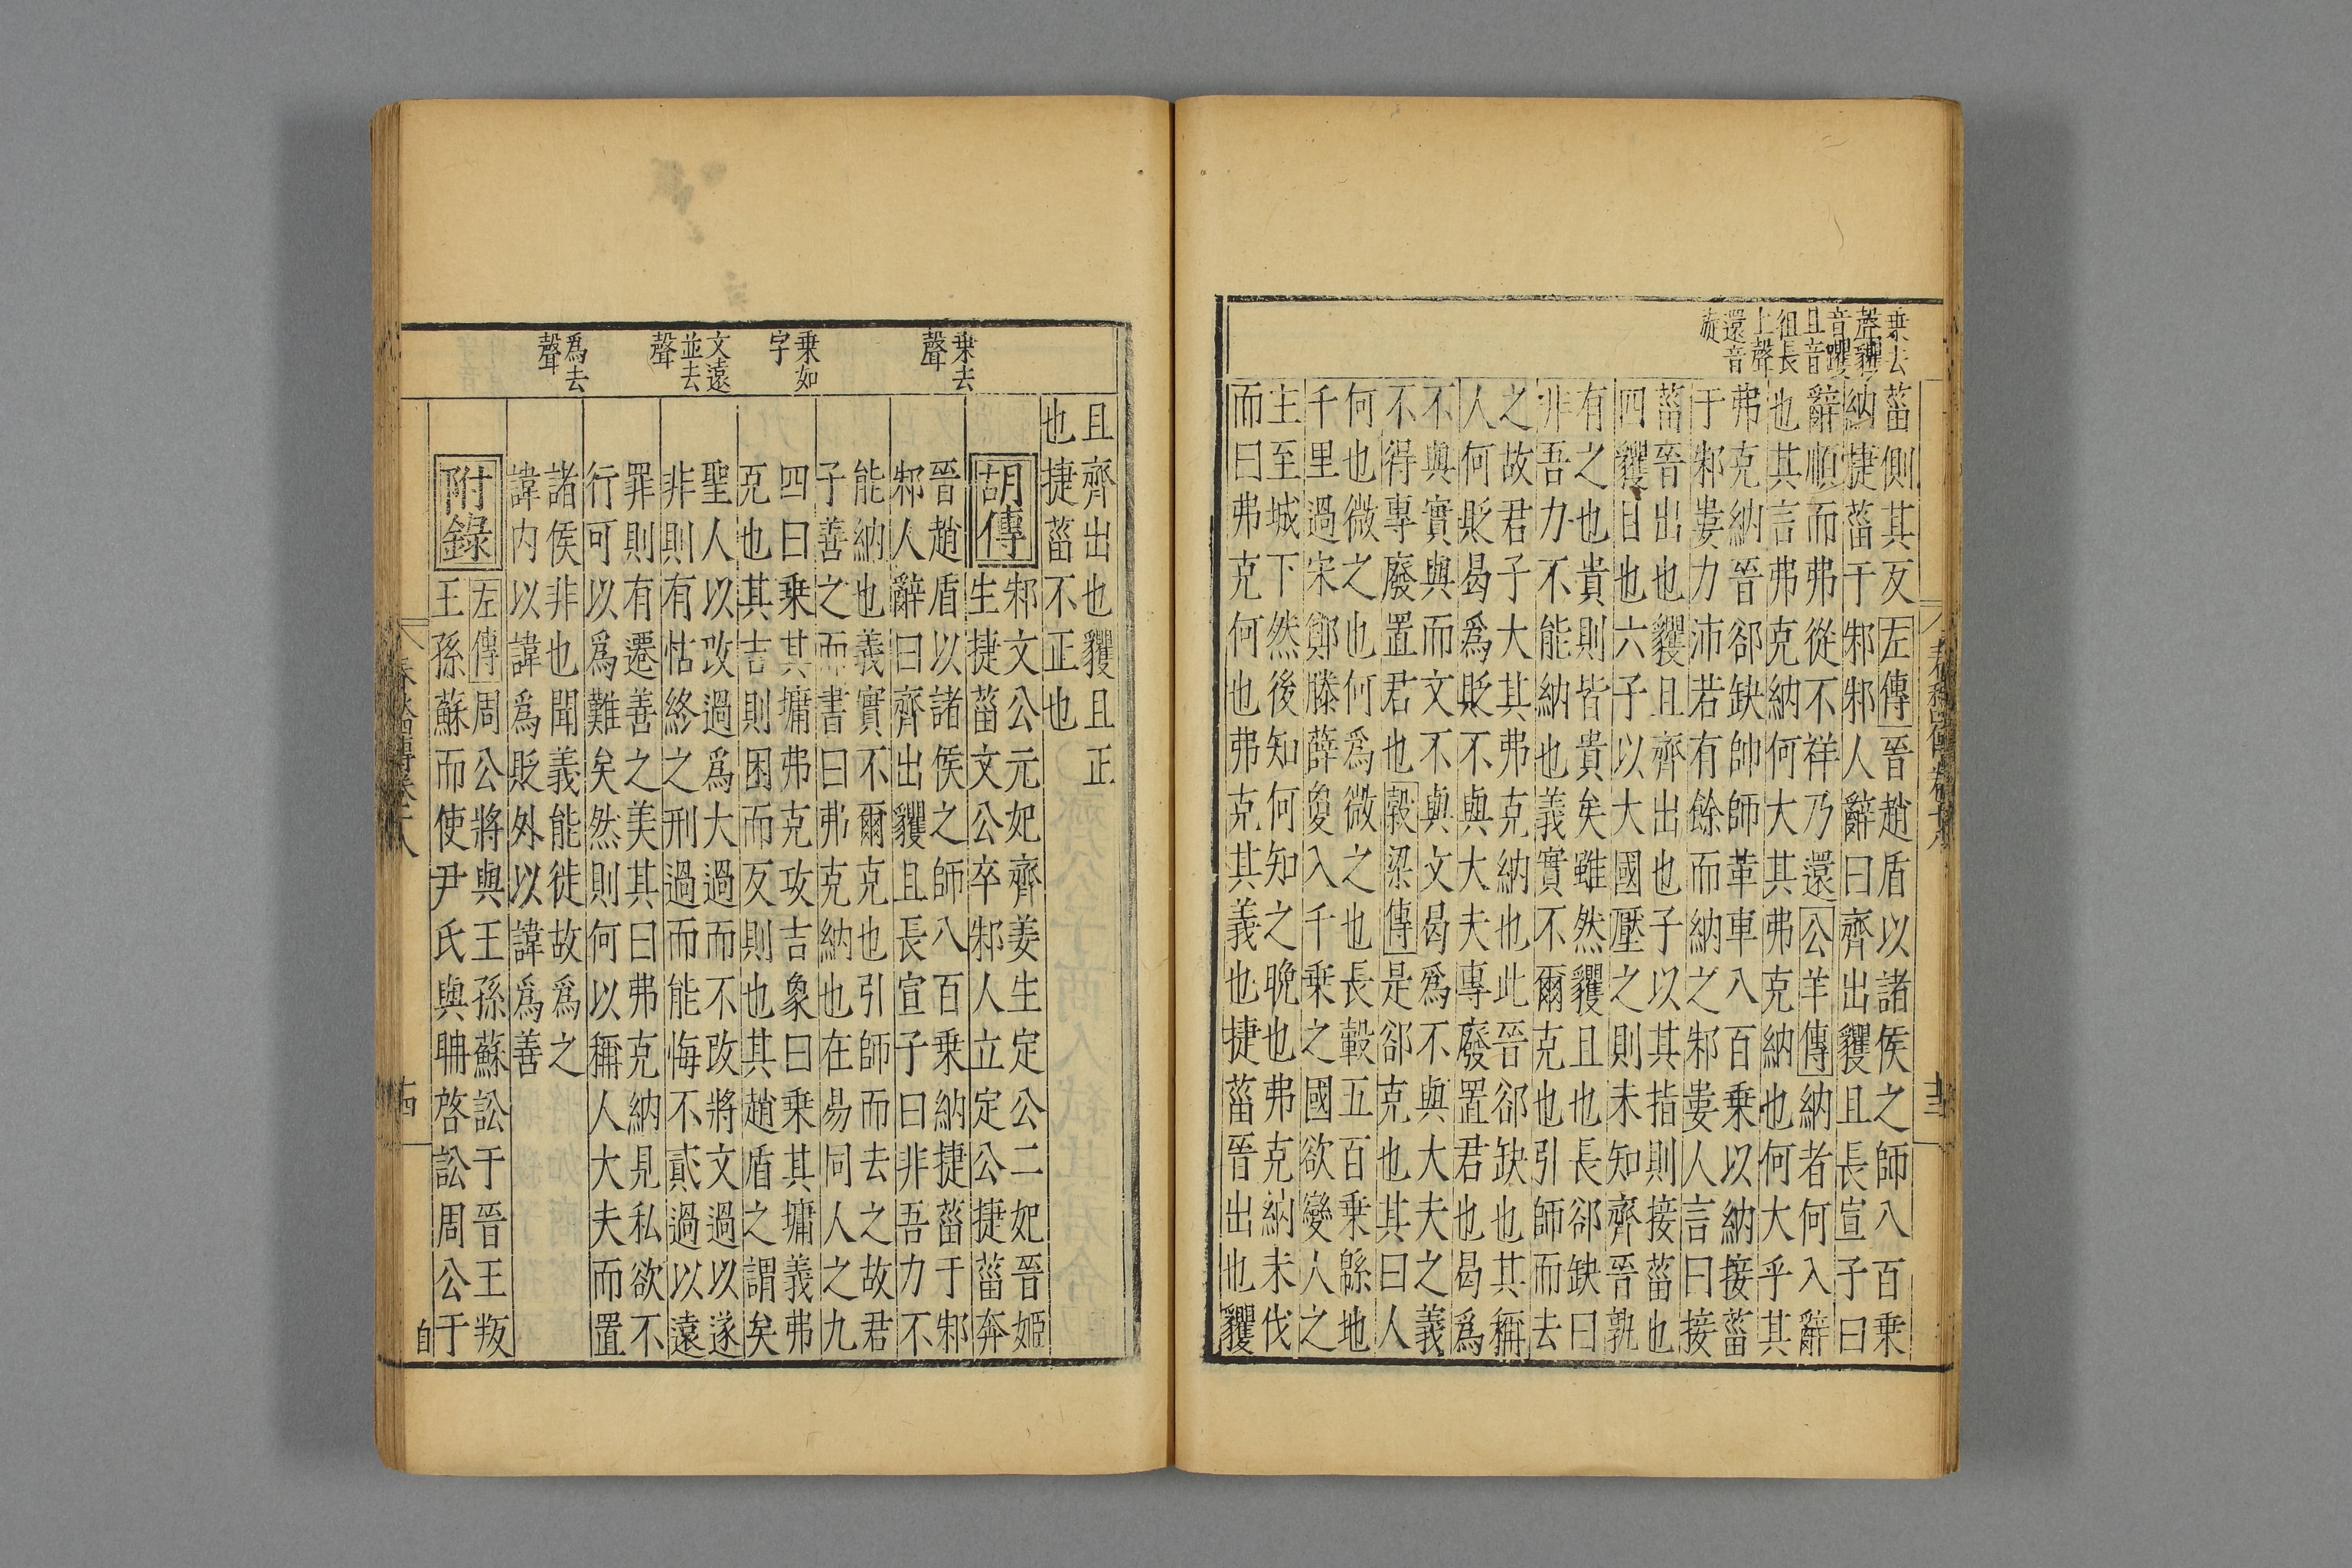 乗去
聲貜
音躩
且音
徂長
上聲
還音
旋
菑側其反左傳晉趙盾以諸侯之師八百乗
納捷菑于邾邾人辭曰齊出貜且長宣子曰
辭順而弗從不祥乃還公羊傳納者何入辭
也其言弗克納何大其弗克納也何大乎其
弗克納晉郤缺帥師革車八百乗以納接菑
于邾婁力沛若有餘而納之邾婁人言曰接
菑晉出也貜且齊出也子以其指則接菑也
四貜且也六子以大國壓之則未知齊晉孰
有之也貴則皆貴矣雖然貜且也長郤缺曰
非吾力不能納也義實不爾克也引師而去
之故君子大其弗克納也此晉郤缺也其稱
人何貶曷爲貶不與大夫專廢置君也曷爲
不與實與而文不與文曷爲不與大夫之義
不得專廢置君也榖梁傳是郤克也其曰人
何也微之也何爲微之也長轂五百乗緜地
千里過宋鄭滕薛夐入千乗之國欲變人之
主至城下然後知何知之晩也弗克納未伐
而曰弗克何也弗克其義也捷菑晉出也貜
且齊出也貜且正
也捷菑不正也
乗去
聲
乗如
字
文遠
並去
聲
爲去
聲
胡傳
邾文公元妃齊姜生定公二妃晉姬
生捷菑文公卒邾人立定公捷菑奔
晉趙盾以諸侯之師八百乗納捷菑于邾
邾人辭曰齊出貜且長宣子曰非吾力不
能納也義實不爾克也引師而去之故君
子善之而書曰弗克納也在易同人之九
四曰乗其墉弗克攻吉象曰乗其墉義弗
克也其吉則困而反則也其趙盾之謂矣
聖人以改過爲大過而不改將文過以遂
非則有怙終之刑過而能悔不貳過以遠
罪則有遷善之美其曰弗克納見私欲不
行可以爲難矣然則何以稱人大夫而置
諸侯非也聞義能徙故爲之
諱内以諱爲貶外以諱爲善
附錄
左傳周公將與王孫蘇訟于晉王叛
王孫蘇而使尹氏與聃啓訟周公于
春秋四傳卷十八
十四
自